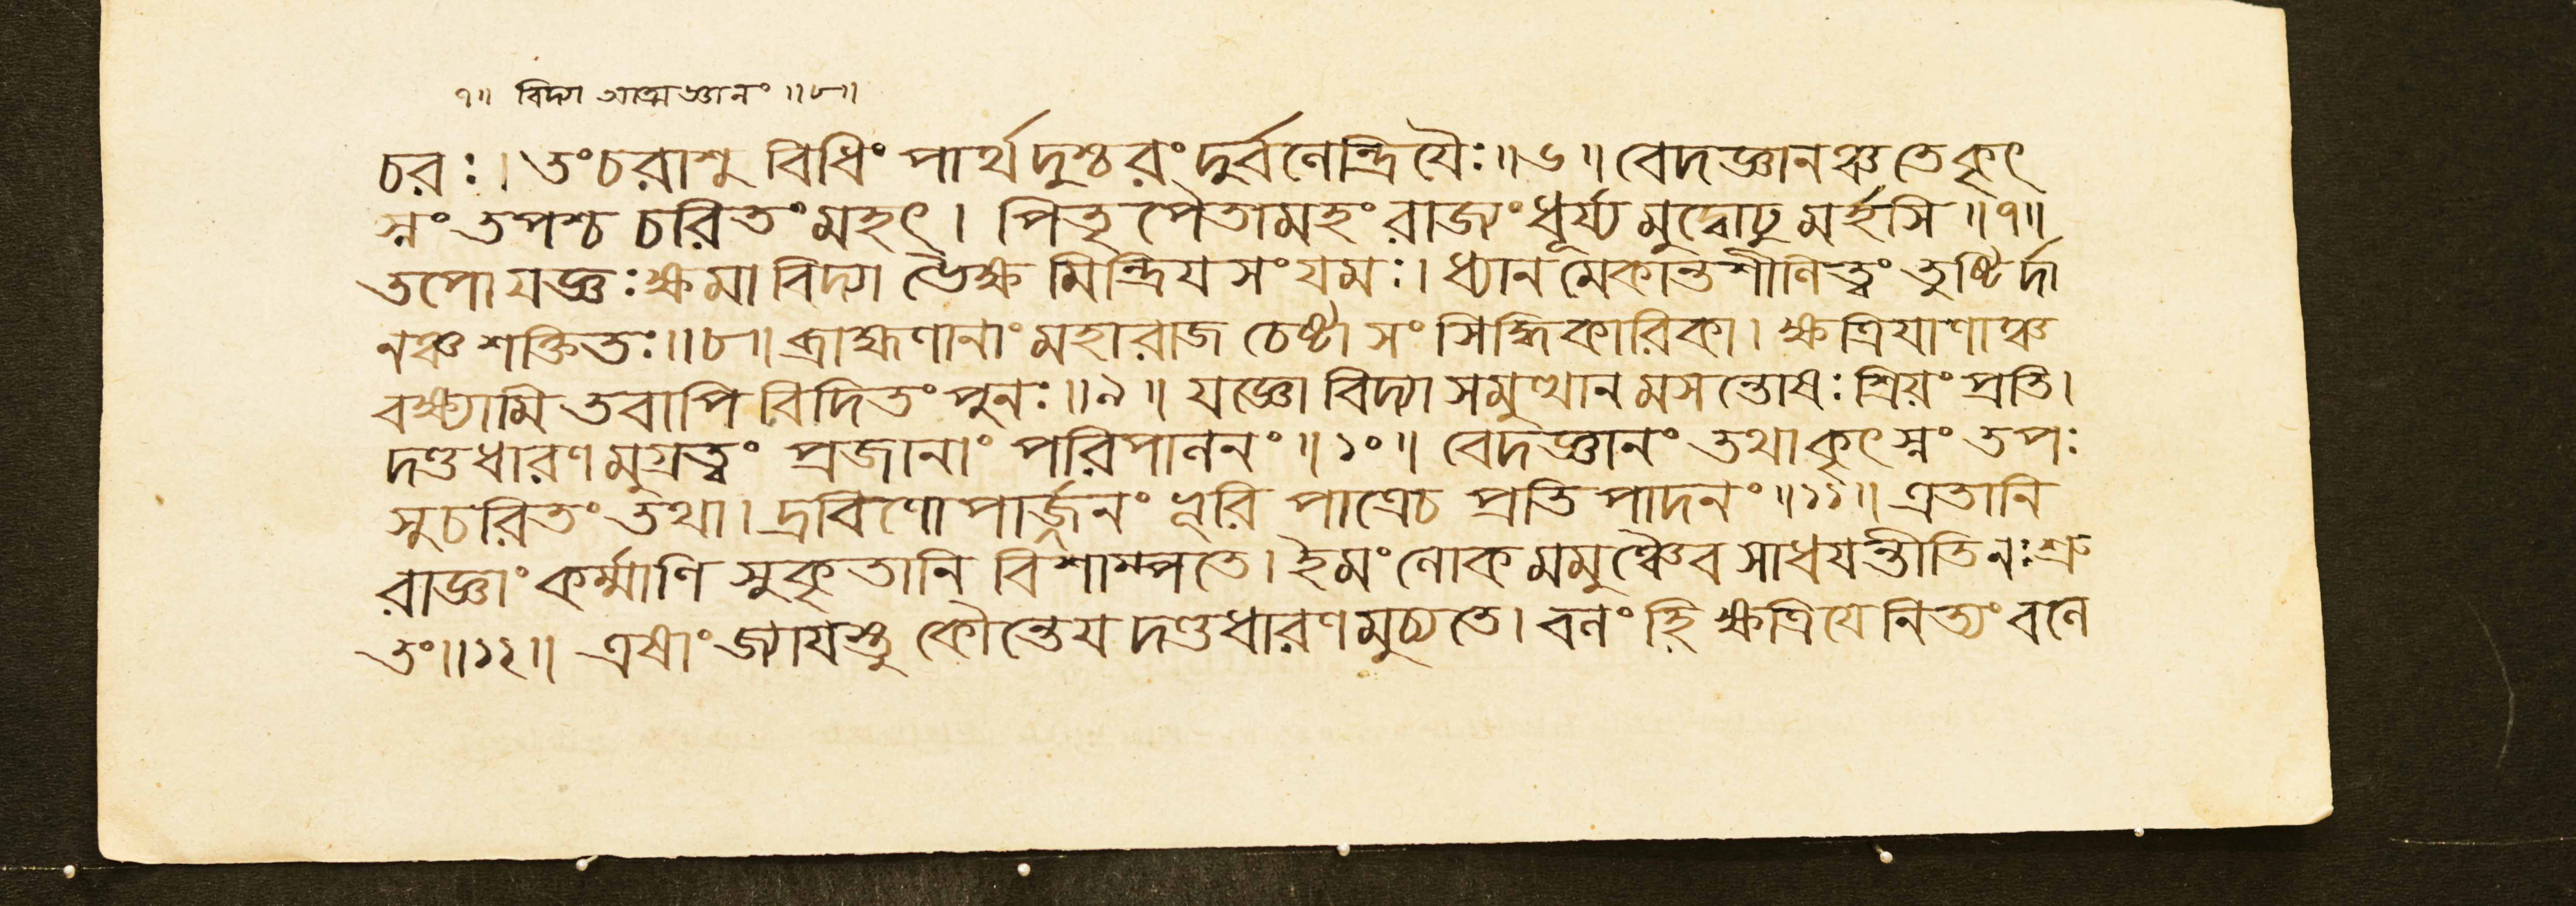 ৭॥ বিদ্যা আত্মজ্ঞানং ॥৮॥
চরঃ। তং চরাশু বিধিং পার্থ দুশ্চরং দুর্বলেন্দ্রিযৈঃ॥৬॥ বেদজ্ঞানঞ্চ তে কৃৎ
স্নং তপশ্চ চরিতং মহৎ। পিতৃপৈতামহং রাজ্যং ধূর্য্য মুদ্বোঢু মর্হসি ॥৭॥
তপো যজ্ঞঃ ক্ষমা বিদ্যা ভৈক্ষ মিন্দ্রিয সংযমঃ। ধ্যান মেকান্তশীলিত্বং তুষ্টির্দা
নঞ্চ শক্তিতঃ॥৮॥ ব্রাহ্মণানাং মহারাজ চেষ্টা সংসিদ্ধিকারিকা। ক্ষত্রিযাণাঞ্চ
বক্ষ্যামি তবাপি বিদিতং পুনঃ॥৯॥ যজ্ঞো বিদ্যা সমুত্থান মসন্তোষঃ শ্রিয়ং প্রতি।
দণ্ডধারণ মুগ্রত্বং প্রজানাং পরিপালনং ॥১০॥ বেদজ্ঞানং তথা কৃৎস্নং তপঃ
সুচরিতং তথা। দ্রবিণোপার্জ্জনং ভূরি পাত্রে চ প্রতিপাদনং ॥১১॥ এতানি
রাজ্ঞাং কর্ম্মাণি সুকৃতানি বিশাম্পতে। ইমং লোক মমুঞ্চৈব সাধযন্তীতি নঃ শ্রু
তং॥১২॥ এষাং জ্যাযস্তু কৌন্তেয দণ্ডধারণ মুচ্যতে। বলং হি ক্ষত্রিযে নিত্যং বলে